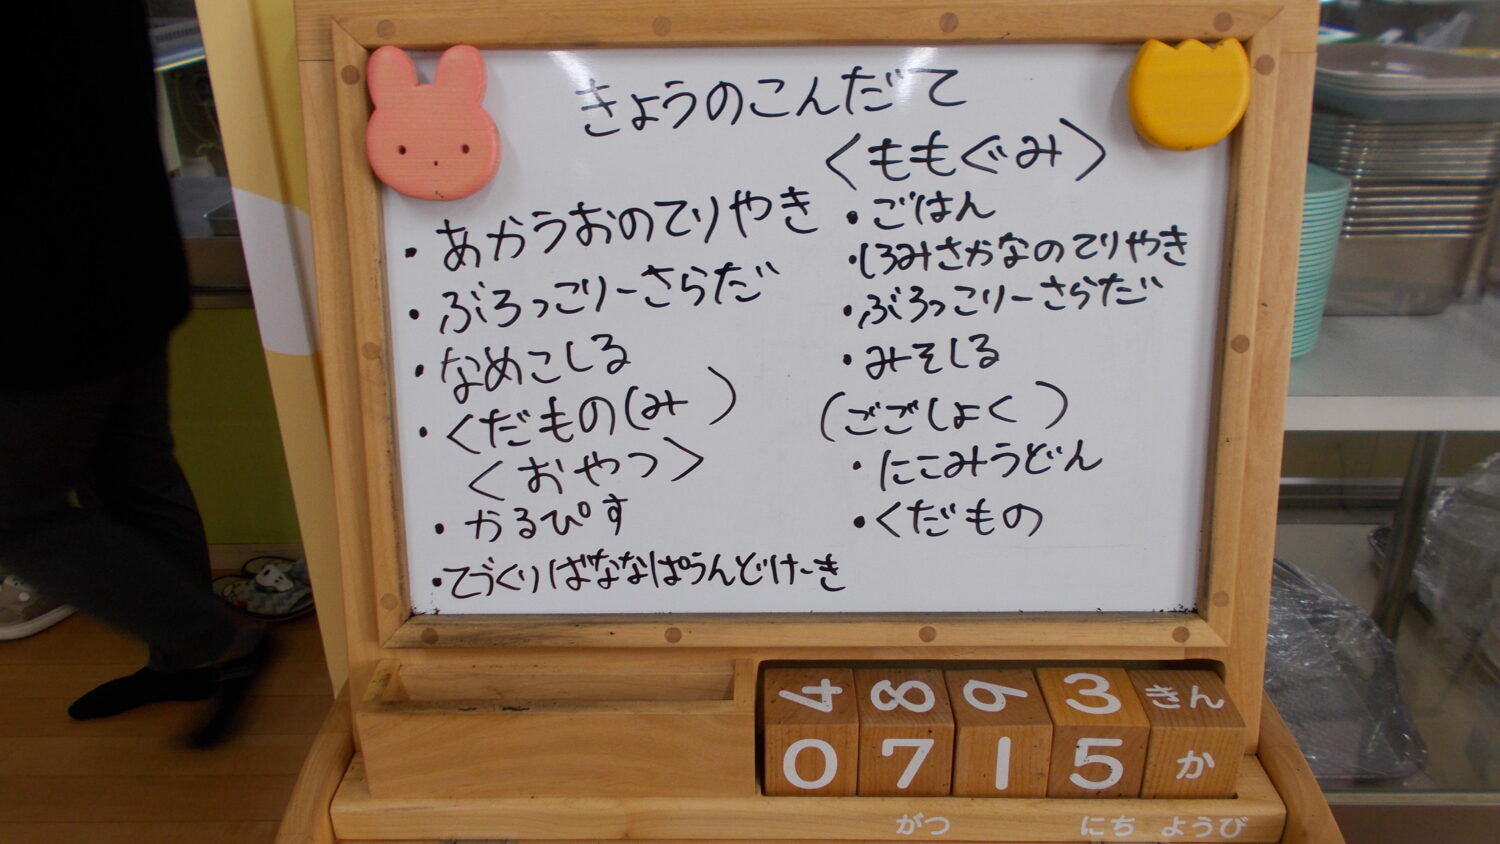 きょうのこんだて
・あかうおのてりやき
・ぶろっこりーさらだ
・なめこしる
・くだもの(み )
<おやつ>
・かるぴす
・てづくりばななぱうんどけーき
<ももぐみ>
・ごはん
・しろみさかなのてりやき
・ぶろっこりーさらだ
・みそしる
(ごごしょく )
・にこみうどん
・くだもの
4 8 9 3 きん
0 7 1 5 か
がつ にち ようび